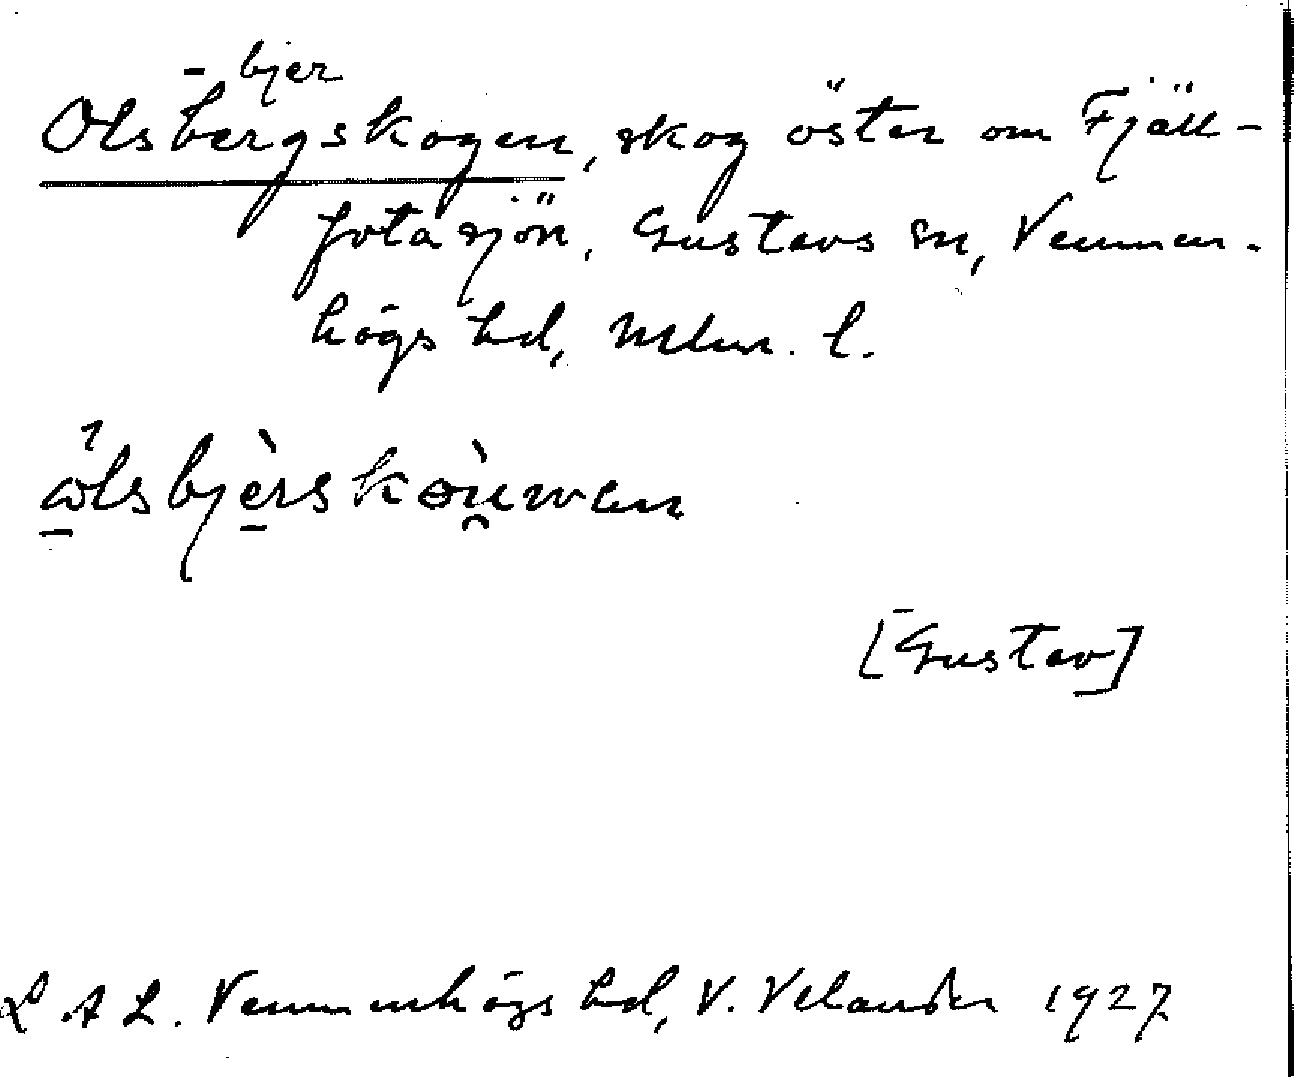 - bjer
Olsbergskogen, skog öster om Fjäll-
fotasjön, Gustavs sn, Vemmen-
högs hd, Mlm. l.
ω̲lsbjè̲rskɵù̯wen
[Gustav]
L A L. Vemmenhögs hd, V. Velander 1927